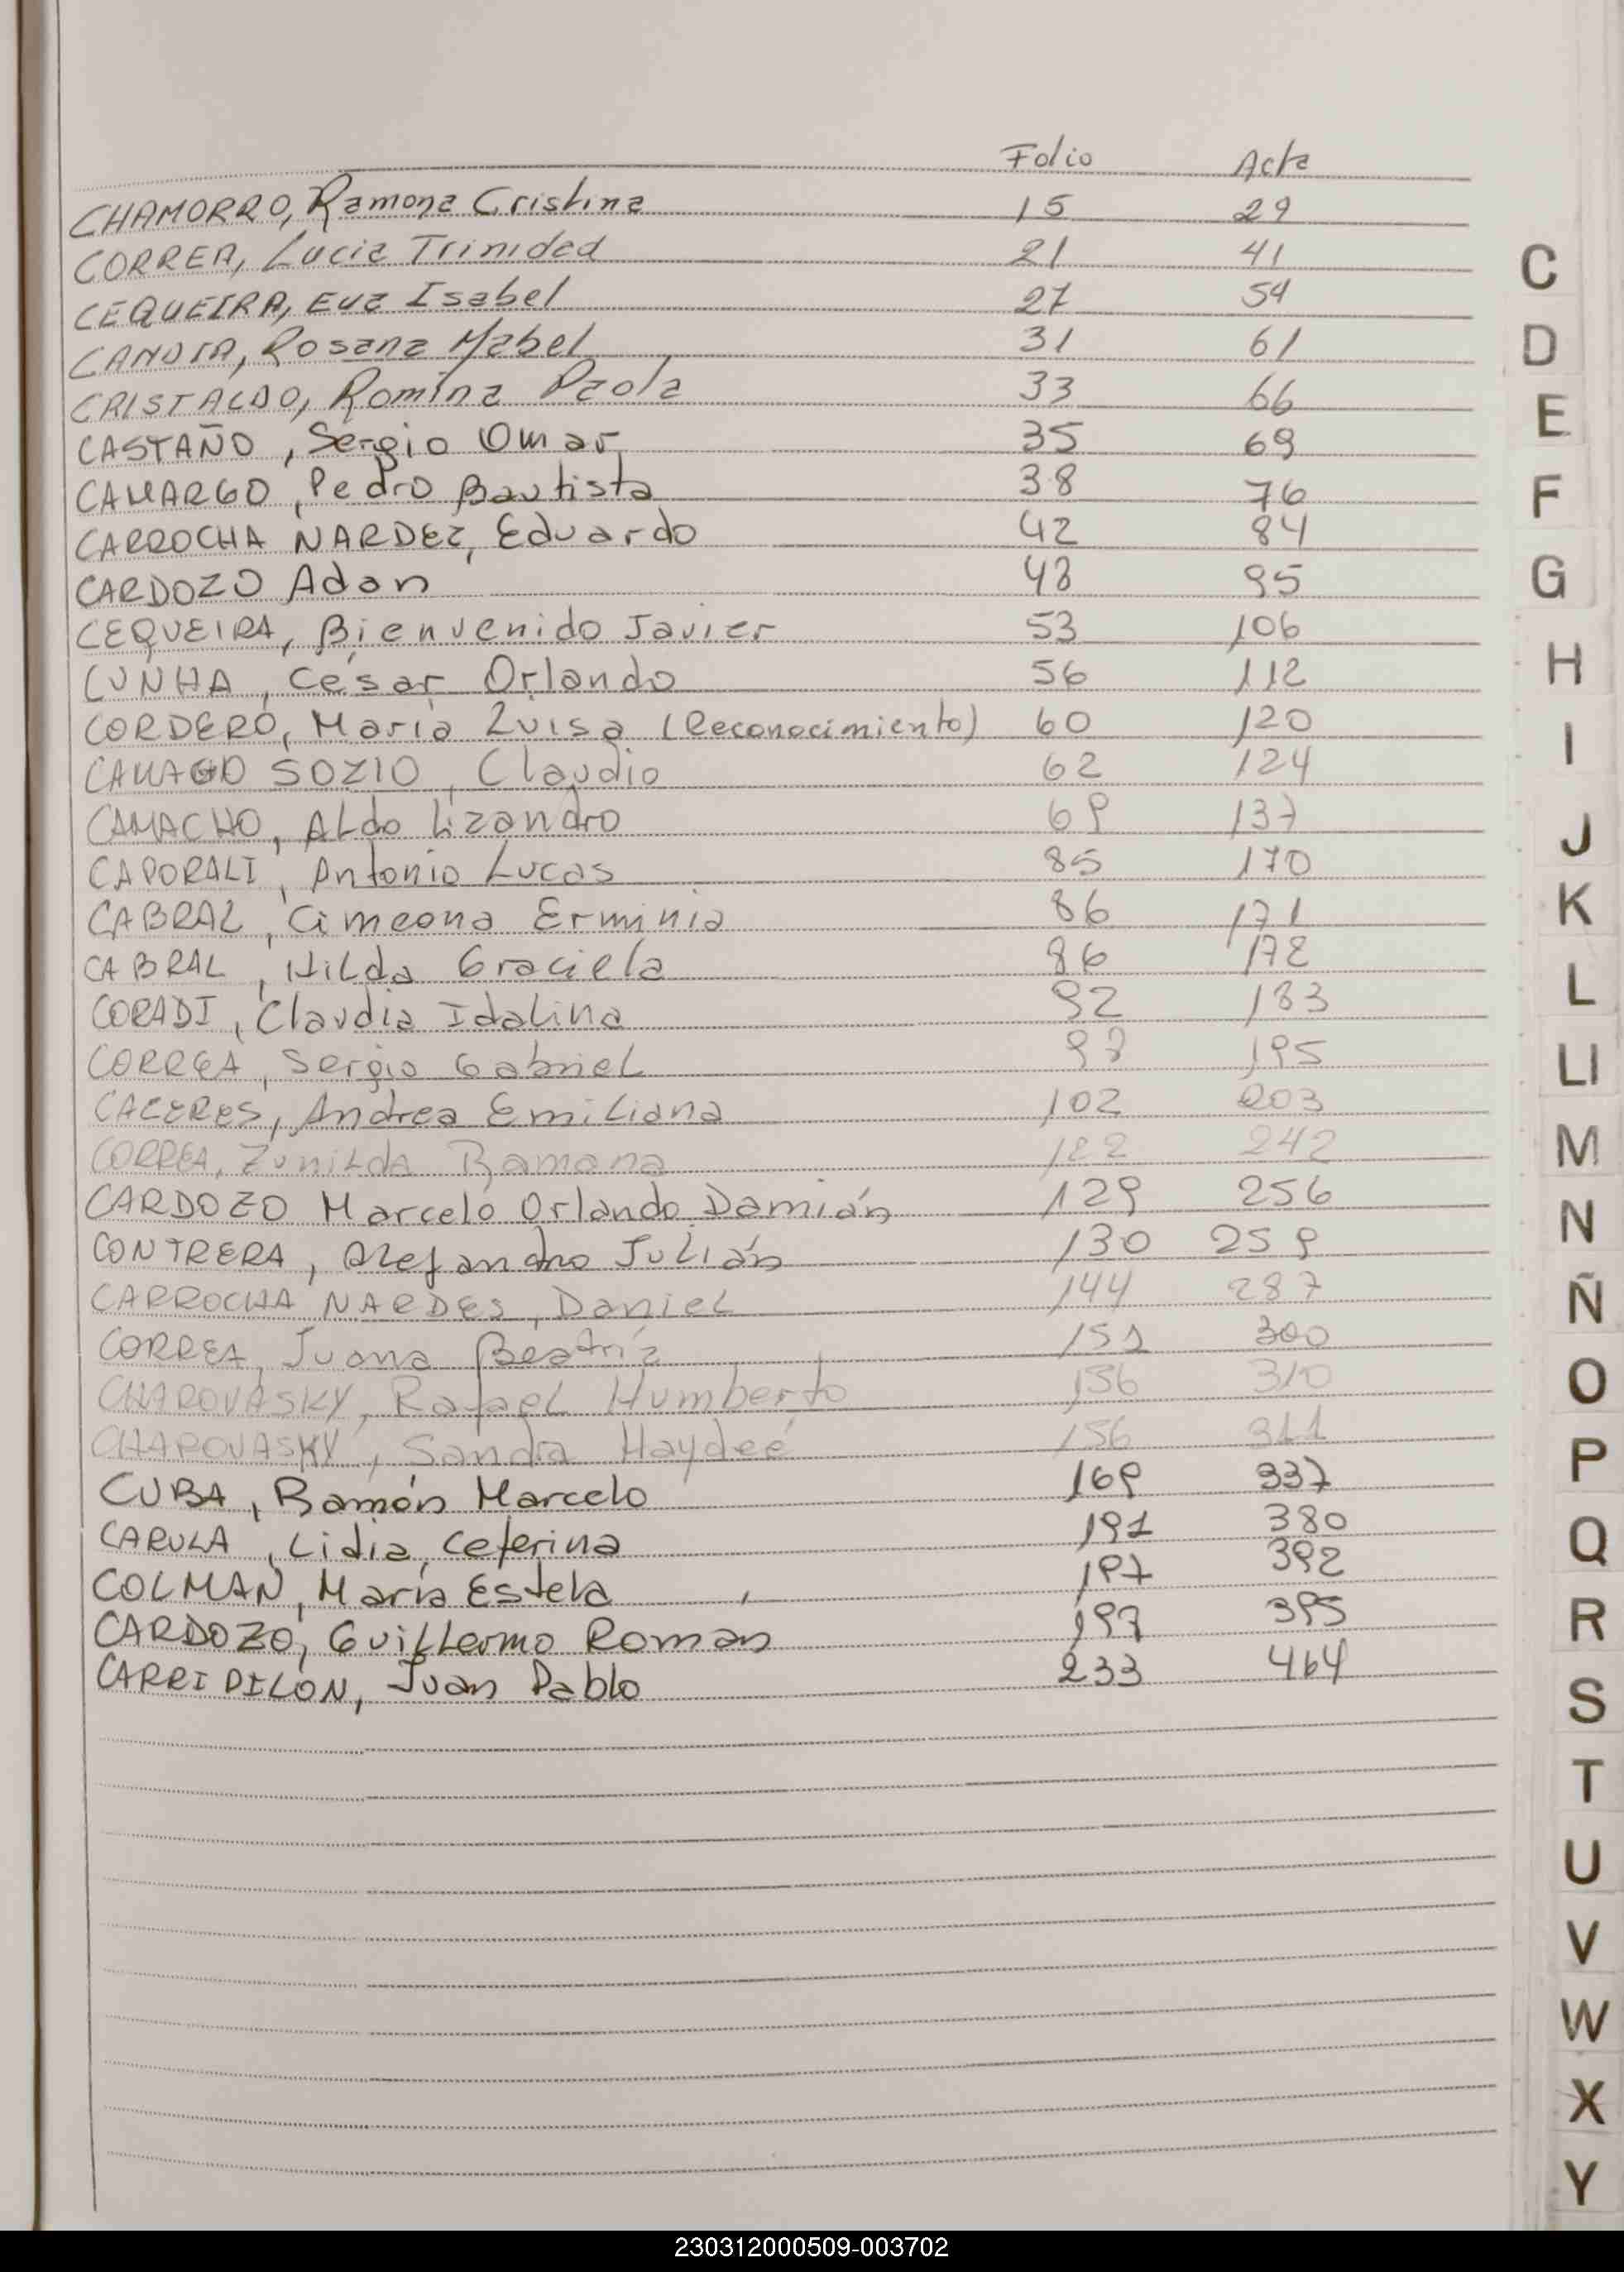 Folio Acta
CHAMORRO, Ramona Cristina 15 29
CORREA, Lucia Trinidad 21 41
CEQUEIRA, Eva Isabel 27 54
CANDIA, Rosana Mabel 31 61
CRISTALDO, Romina Paola 33 66
CASTAÑO, Sergio Omar 35 69
CAMARGO, Pedro Bautista 38 76
CARROCHA NARDEZ, Eduardo 42 84
CARDOZO Adan 48 95
CEQUEIRA, Bienvenido Javier 53 106
CUNHA, César Orlando 56 112
CORDERO, María Luisa (Reconocimiento) 60 120
SOZIO, Claudio 62 124
CAMACHO, Aldo Lizandro 69 137
CAPORALI, Antonio Lucas 85 170
CABRAL, Cimeona Erminia 86 171
CABRAL, Hilda Graciela 86 172
CORADI, Claudia Idalina 92 183
CORREA, Sergio Gabriel 98 195
CACERES, Andrea Emiliana 102 203
CORREA, Zunilda Ramona 122 242
CARDOZO Marcelo Orlando Damián 129 256
CONTRERA, Alejandro Julián 130 259
CARROCHA NARDES, Daniel 144 287
CORREA, Juana Beatríz 151 300
CHAROVASKY, Rafael Humberto 156 310
CHAROVASKY, Sandra Haydeé 156 311
CUBA, Ramón Marcelo 169 337
CARULA, Lidia, Ceferina 191 380
COLMAN, María Estela 197 392
CARDOZO, Guillermo Roman 197 395
CARRIDILON, Juan Pablo 233 464
C
D
E
F
G
H
I
J
K
L
Ll
M
N
Ñ
O
P
Q
R
S
T
U
V
W
X
Y
230312000509-003702